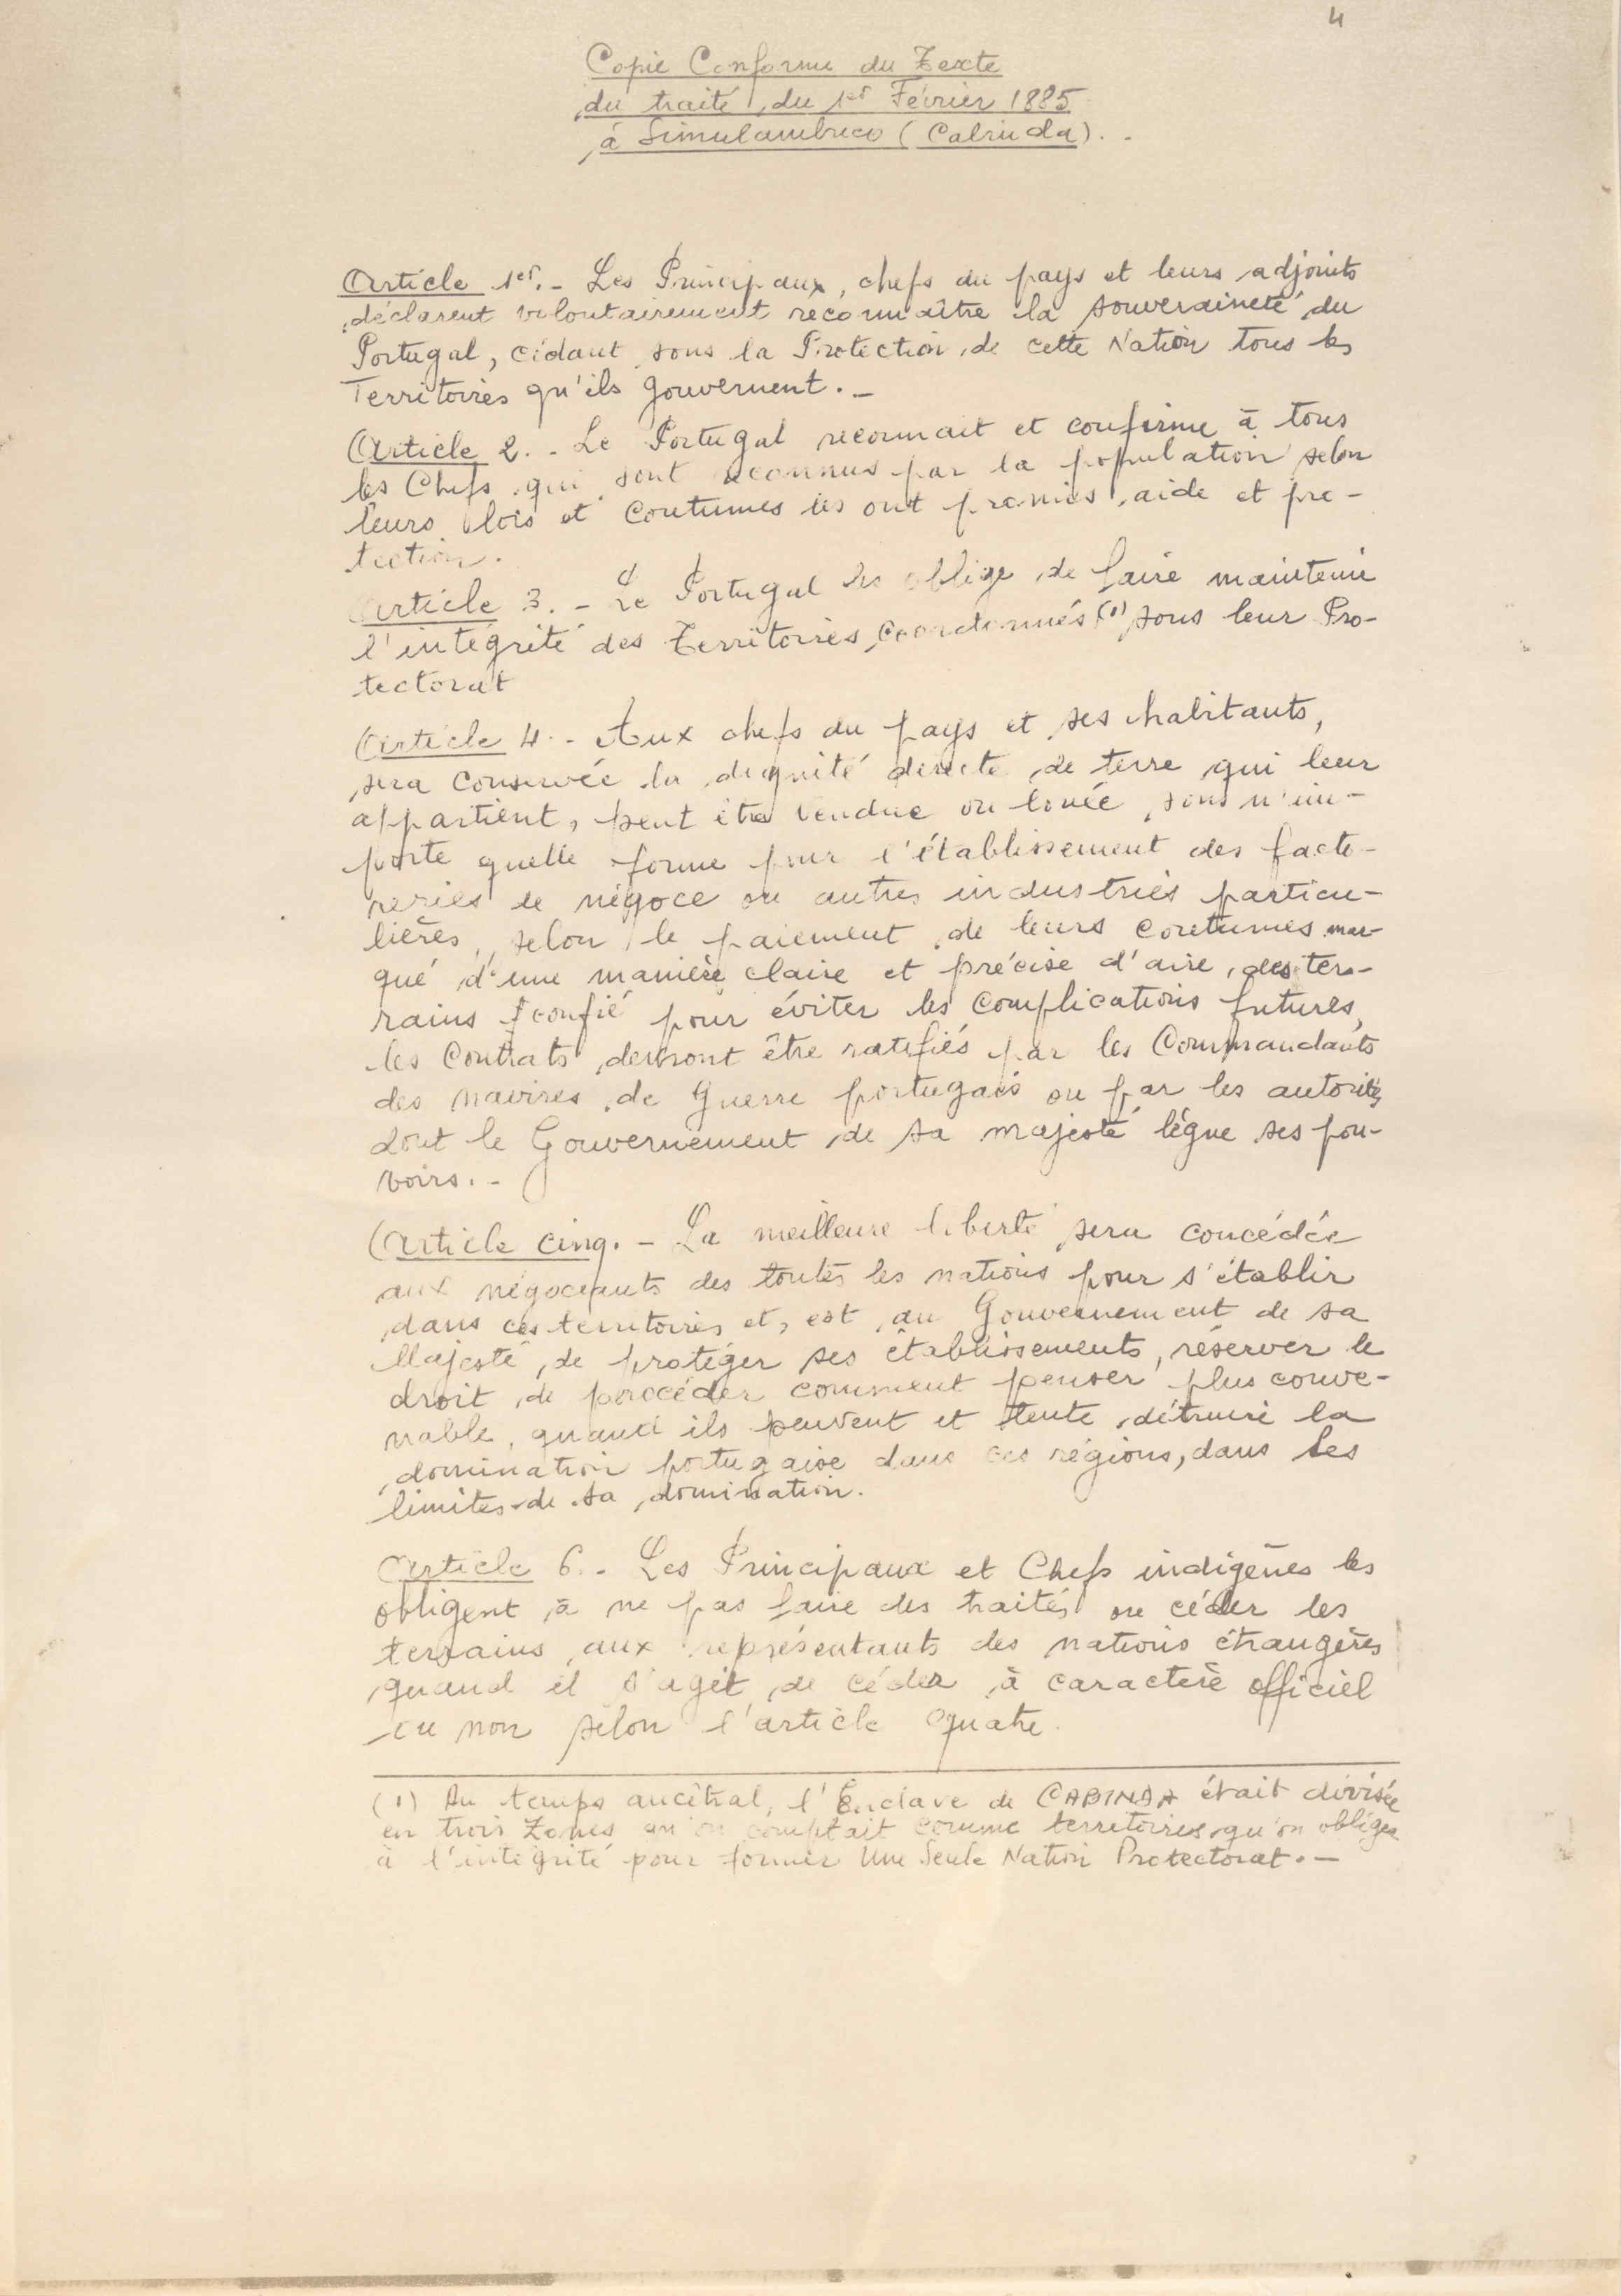 4
Copie Conforme du Texte
du traité du 1er Février 1885
à Simulambuco (Cabinda). -
Article 1er. - Les Principaux, chefs du pays et leurs adjoints
déclarent volontairement reconnaître la souveraineté du
Portugal, cédant sous la Protection de cette Nation tous les
Territoires qu'ils gouvernent. -
Article 2. - Le Portugal reconnait et confirme à tous
les Chefs qui sont reconnus par la population selon
leurs lois et coutumes les ont promis, aide et pro-
tection.
Article 3. - Le Portugal les oblige de faire maintenir
l'intégrité des Territoires coordonnés (1) sous leur Pro-
tectorat
Article 4. - Aux chefs du pays et ses habitants,
sera conservée la dignité directe de terre qui leur
appartient, peut être vendue ou louée, sous n'im-
porte quelle forme pour l'établissement des facto-
reries de négoce ou autres industries particu-
lières, selon le paiement de leurs coutumes mar-
qué d'une manière claire et précise d'aire, des ter-
rains confié pour éviter les complications futures,
les Contrats devront être ratifiés par les Commandants
des navires de Guerre portugais ou par les autorités
dont le Gouvernement de sa majesté lègue ses pou-
voirs. -
Article cinq. - La meilleure liberté sera concédée
aux négociants des toutes les nations pour s'établir
dans ces territoires et, est au Gouvernement de sa
Majesté, de protéger ses établissements, réserver le
droit de procéder comment penser plus conve-
nable, quand ils peuvent et tente détruire la
domination portugaise dans ces régions, dans les
limites de sa domination.
Article 6. - Les Principaux et Chefs indigènes les
obligent à ne pas faire des traités ou céder les
terrains aux représentants des nations étrangères
quand il s'agit de céder à caractère officiel
ou non selon l'article quatre.
(1) Au temps ancêtral, l'Enclave de CABINDA était divisée
en trois Zones qu'on comptait comme territoires qu'on obligea
à l'intégrité pour former Une Seule Nation Protectorat. -